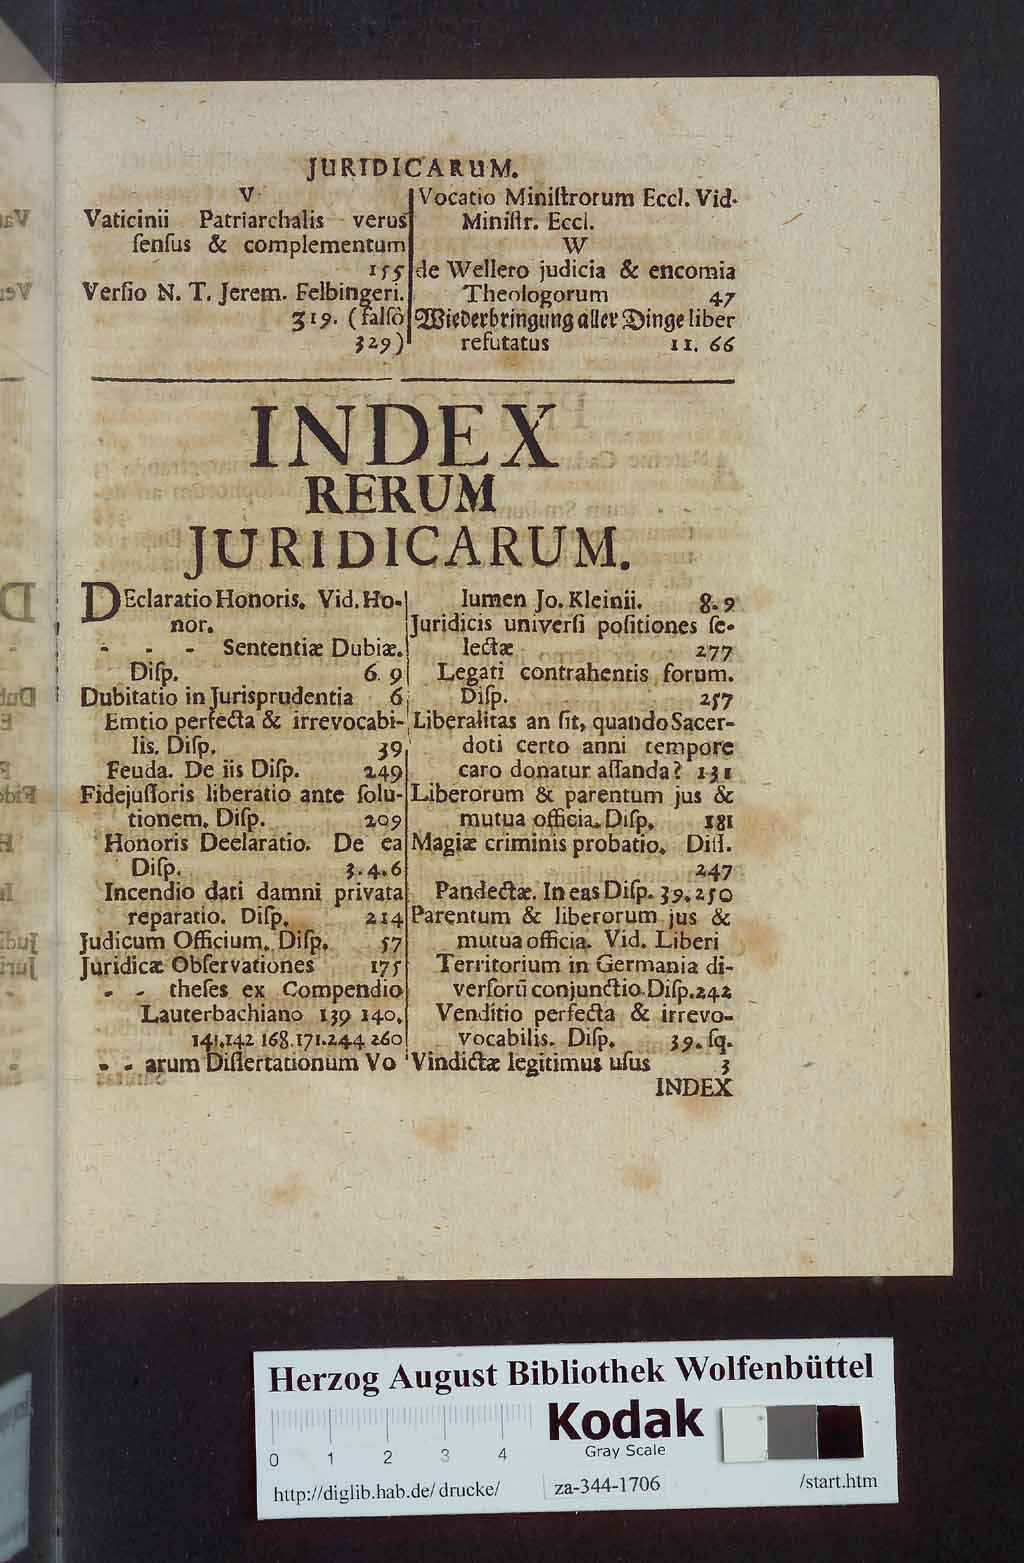 JURIDICARUM.
V
Vaticinii Patriarchalis verus
ſenſus & complementum
155
Verſio N. T. Jerem. Felbingeri.
319. (falſò
329)
Vocatio Miniſtrorum Eccl. Vid.
Miniſtr. Eccl.
W
de Wellero judicia & encomia
Theologorum 47
Wiederbringung aller Dinge liber
refutatus 11. 66
INDEX
RERUM
JURIDICARUM.
DEclaratio Honoris. Vid. Ho-
nor.
- - - Sententiæ Dubiæ.
Diſp. 6. 9
Dubitatio in Jurisprudentia 6
Emtio perfecta & irrevocabi-
lis. Diſp. 39
Feuda. De iis Diſp. 249
Fidejuſſoris liberatio ante ſolu-
tionem. Diſp. 209
Honoris Deelaratio. De ea
Diſp. 3. 4. 6
Incendio dati damni privata
reparatio. Diſp. 214
Judicum Officium. Diſp. 57
Juridicæ Obſervationes 175
- - theſes ex Compendio
Lauterbachiano 139 140.
141.142 168.171.244 260
- - arum Diſſertationum Vo
lumen Jo. Kleinii. 8. 9
Juridicis univerſi poſitiones ſe-
lectæ 277
Legati contrahentis forum.
Diſp. 257
Liberalitas an ſit, quando Sacer-
doti certo anni tempore
caro donatur aſſanda? 131
Liberorum & parentum jus &
mutua officia. Diſp. 181
Magiæ criminis probatio. Diſſ.
247
Pandectæ. In eas Diſp. 39. 250
Parentum & liberorum jus &
mutua officia. Vid. Liberi
Territorium in Germania di-
verſorū conjunctio. Diſp. 242
Venditio perfecta & irrevo-
vocabilis. Diſp. 39. ſq.
Vindictæ legitimus uſus 3
INDEX
Herzog August Bibliothek Wolfenbüttel
Kodak
Gray Scale
0 1 2 3 4
http://diglib.hab.de/drucke/ za-344-1706 /start.htm